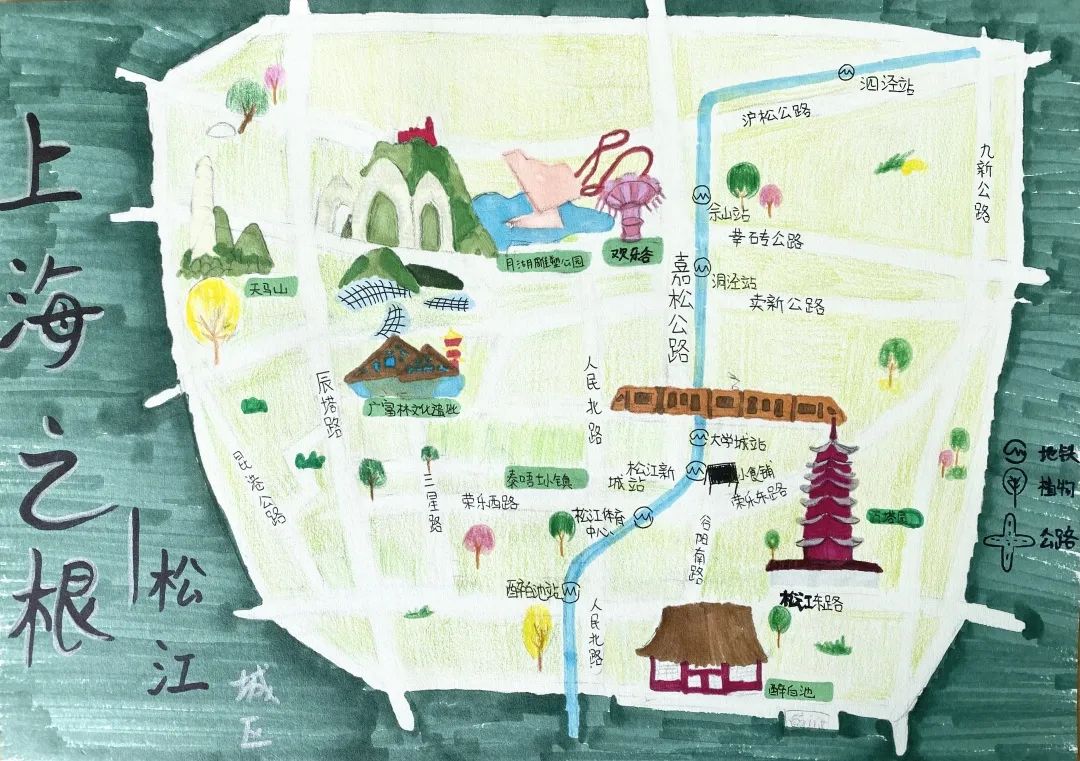 上海之根
松江
城区
泗泾站
沪松公路
九新公路
佘山站
莘砖公路
嘉松公路
洞泾站
卖新公路
月湖雕塑公园
欢乐谷
天马山
广富林文化遗址
辰塔路
人民北路
昆港公路
三星路
泰晤士小镇
荣乐西路
大学城站
松江新
城站
小食铺
荣乐东路
松江体育
中心
谷阳南路
方塔园
醉白池站
人民北路
松江东路
醉白池
地铁
植物
公路